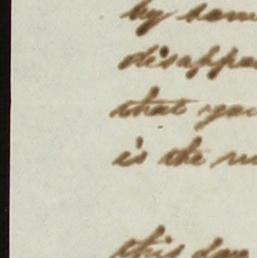 by some
disappo
that you
is the
this day